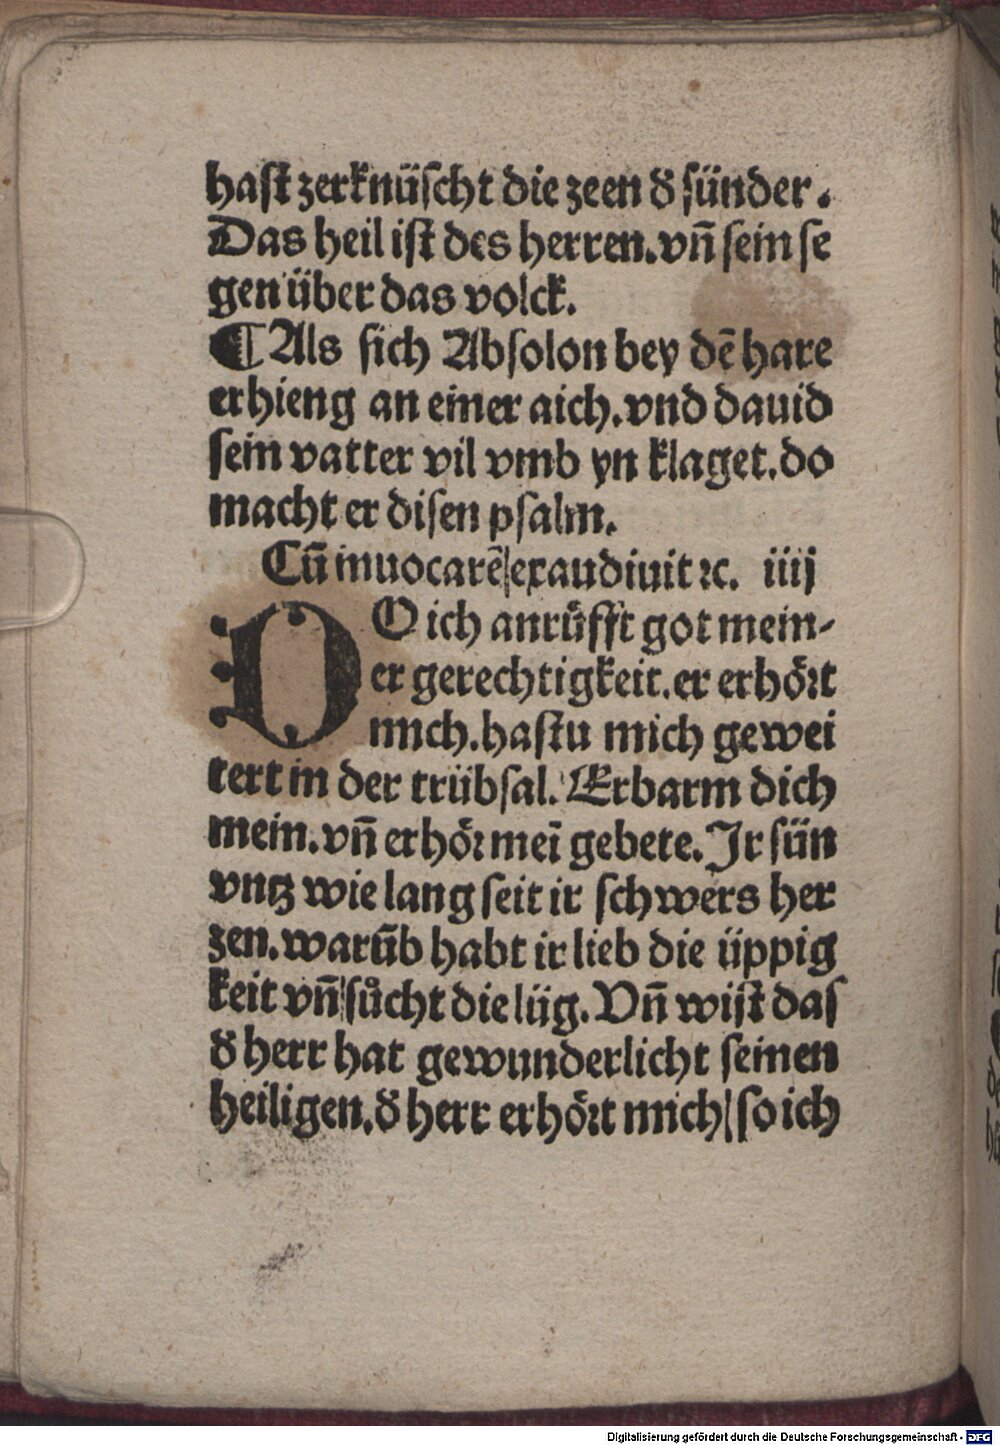 hast zerknüscht die zeen ð sünder.
Das heil ist des herren.vn̄ sein se
gen über das volck.
¶ Als sich Absolon bey dē hare
erhieng an einer aich.vnd dauid
sein vatter vil vmb yn klaget.do
macht er disen psalm.
Cū inuocarē/exaudiuit ꝛc. iiij
DO ich anrüfft got mein-
er gerechtigkeit.er erhöꝛt
mich.hastu mich gewei
tert in der trübsal. Erbarm dich
mein.vn̄ erhöꝛ meī gebete.Ir sün
vntz wie lang seit ir schwers her
zen.warūb habt ir lieb die üppig
keit vn̄/sůcht die lüg.Vn̄ wist das
ð herr hat gewunderlicht seinen
heiligen.ð herr erhöꝛt mich/so ich
Digitalisierung gefördert durch die Deutsche Forschungsgemeinschaft - DFG